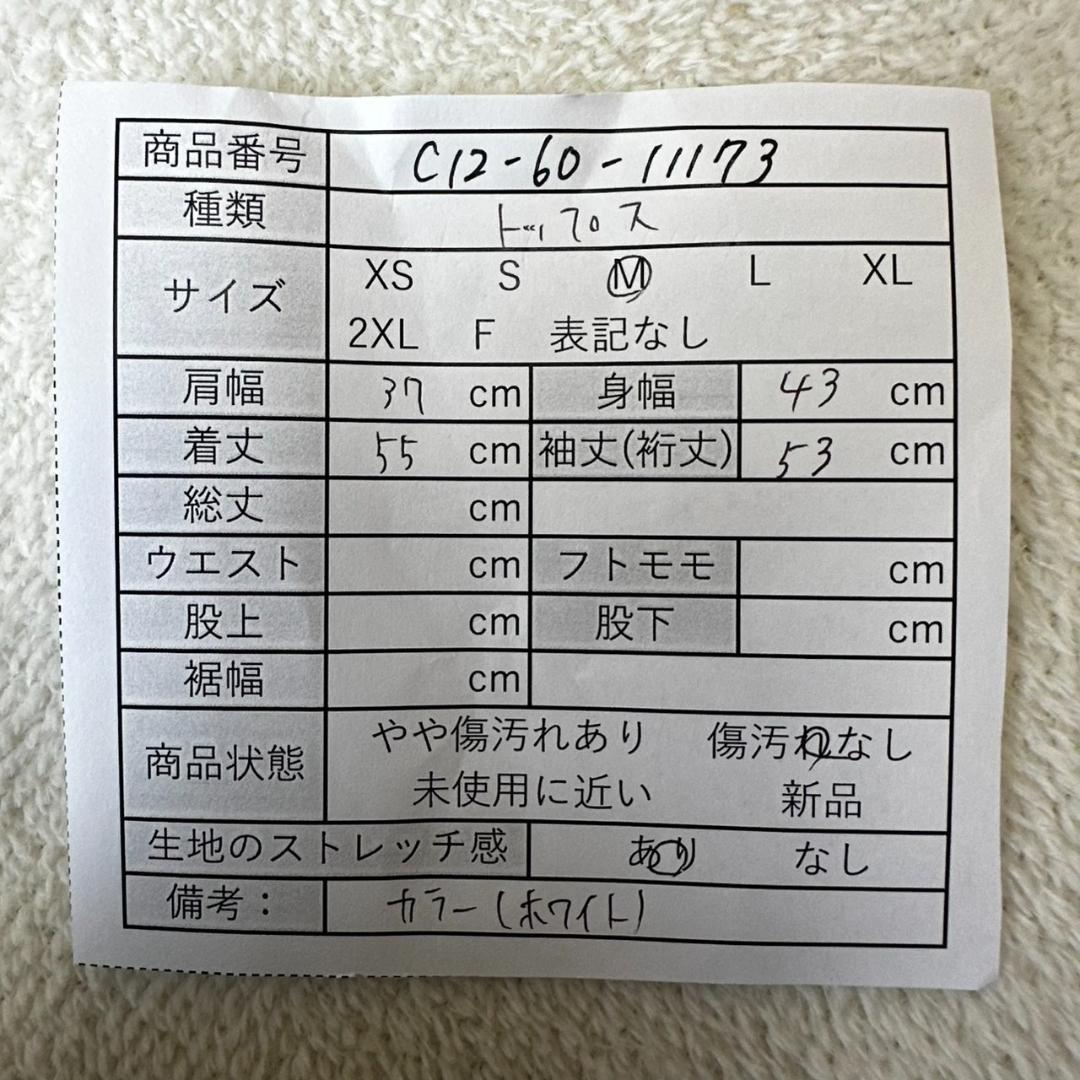 商品番号 C12-60-11173
種類 トップス
サイズ XS S M L XL
2XL F 表記なし
肩幅 37 cm 身幅 43 cm
着丈 55 cm 袖丈(裄丈) 53 cm
総丈 cm
ウエスト cm フトモモ cm
股上 cm 股下 cm
裾幅 cm
商品状態 やや傷汚れあり 傷汚れなし
未使用に近い 新品
生地のストレッチ感 あり なし
備考： カラー(ホワイト)